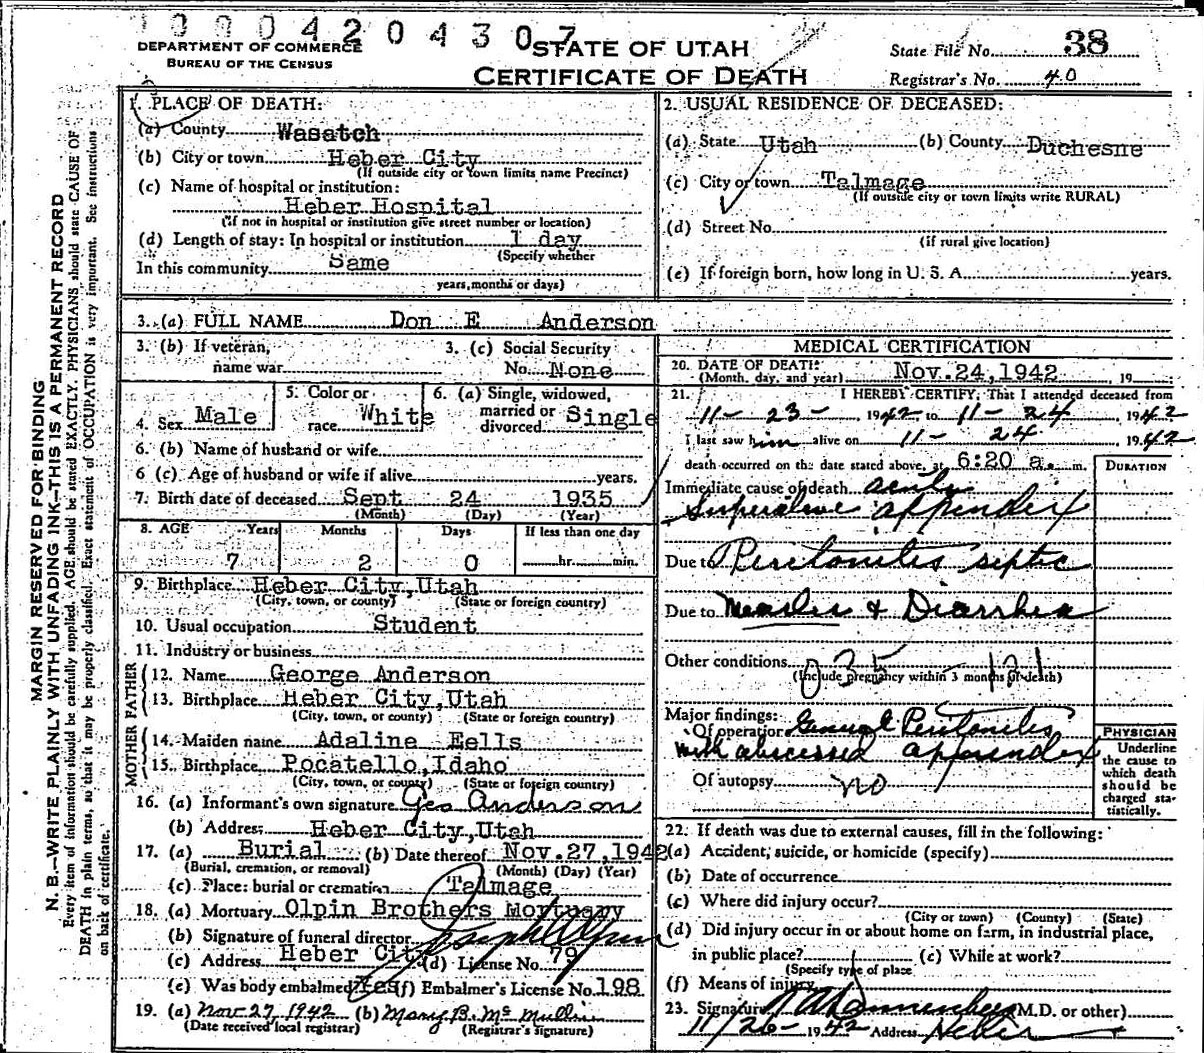 0 0 0 4 2 0 4 3 0 7
DEPARTMENT OF COMMERCE
BUREAU OF THE CENSUS
STATE OF UTAH
CERTIFICATE OF DEATH
State File No. 38
Registrar's No. 40
MARGIN RESERVED FOR BINDING
N. B.—WRITE PLAINLY WITH UNFADING INK—THIS IS A PERMANENT RECORD
Every item of information should be carefully supplied. AGE should be stated EXACTLY. PHYSICIANS should state CAUSE OF
DEATH in plain terms, so that it may be properly classified. Exact statement of OCCUPATION is very important. See instructions
on back of certificate.
1. PLACE OF DEATH:
(a) County Wasatch
(b) City or town Heber City
(If outside city or town limits name Precinct)
(c) Name of hospital or institution:
Heber Hospital
(If not in hospital or institution give street number or location)
(d) Length of stay: In hospital or institution 1 day
(Specify whether
In this community Same
years, months or days)
2. USUAL RESIDENCE OF DECEASED:
(a) State Utah (b) County Duchesne
(c) City or town Talmage
(If outside city or town limits write RURAL)
(d) Street No.
(if rural give location)
(e) If foreign born, how long in U. S. A. years.
3. (a) FULL NAME Don E Anderson
3. (b) If veteran,
name war
3. (c) Social Security
No. None
4. Sex Male
5. Color or
race White
6. (a) Single, widowed,
married or
divorced Single
6. (b) Name of husband or wife
6 (c). Age of husband or wife if alive years.
7. Birth date of deceased Sept 24 1935
(Month) (Day) (Year)
8. AGE Years Months Days If less than one day
7 2 0 hr. min.
9. Birthplace Heber City, Utah
(City, town, or county) (State or foreign country)
10. Usual occupation Student
11. Industry or business
FATHER
12. Name George Anderson
13. Birthplace Heber City, Utah
(City, town, or county) (State or foreign country)
MOTHER
14. Maiden name Adaline Eells
15. Birthplace Pocatello, Idaho
(City, town, or county) (State or foreign country)
16. (a) Informant's own signature Geo Anderson
(b) Address Heber City, Utah
17. (a) Burial (b) Date thereof Nov. 27, 1942
(Burial, cremation, or removal) (Month) (Day) (Year)
(c) Place: burial or cremation Talmage
18. (a) Mortuary Olpin Brothers Mortuary
(b) Signature of funeral director Joseph Olpin
(c) Address Heber City (d) License No. 79
(e) Was body embalmed Yes (f) Embalmer's License No. 198
19. (a) Nov 27, 1942 (b) Mary B. McMullin
(Date received local registrar) (Registrar's signature)
MEDICAL CERTIFICATION
20. DATE OF DEATH:
(Month, day, and year) Nov. 24, 1942, 19
21. I HEREBY CERTIFY, That I attended deceased from
11- 23-, 1942 to 11- 24, 1942
I last saw him alive on 11- 24, 1942
death occurred on the date stated above, at 6:20 a. m.
DURATION
Immediate cause of death acute
Supurative appendix
Due to Peritonitis septic
Due to Measles & Diarrhea
Other conditions 035 121
(Include pregnancy within 3 months of death)
Major findings:
Of operation General Peritonitis
with abscessed appendix
Of autopsy no
PHYSICIAN
Underline
the cause to
which death
should be
charged sta-
tistically.
22. If death was due to external causes, fill in the following:
(a) Accident, suicide, or homicide (specify)
(b) Date of occurrence
(c) Where did injury occur?
(City or town) (County) (State)
(d) Did injury occur in or about home on farm, in industrial place,
in public place? (e) While at work?
(Specify type of place
(f) Means of injury
23. Signature (M.D. or other)
11/26- 1942 Address Heber